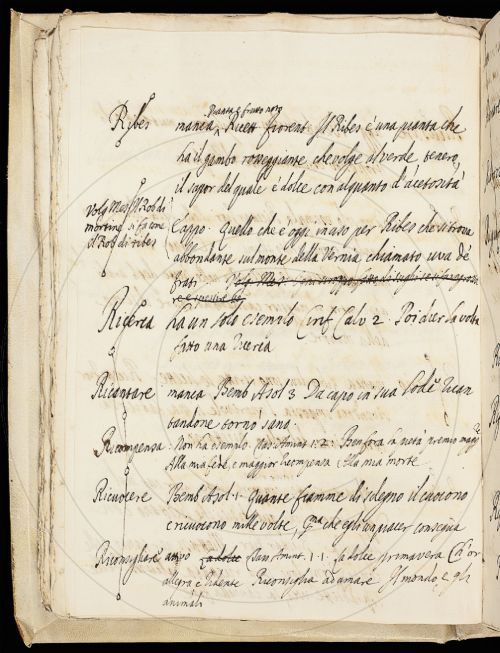 Pianta e frutto noto
Ribes manca, Ricett fiorent Il Ribes è una pianta che
ha il gambo rosseggiante che volge al verde tenero
il sapor del quale è dolce con alquanto d'acetosità
Volg Mes Il Rob di
mortine si fa come
il Rob di ribes
E appo. quello che è oggi in uso per Ribes che si trova
abbondante sul monte della Vernia chiamato uva de
frati Volg Mes
Ricerca ha un solo esemplo Cirif Calv 2 Poi d'er la volta
fatto una ricerca
Ricantare manca Bemb Asol 3 Da capo in sua lode rican
tandone tornò sano
Ricompensa. Non ha esemplo. Tass Amint 1.2. Ben fora in pietà premio magg
Alla mia fede, e maggior ricompensa Alla mia morte
Ricuocere Bemb Asol. 1. Quante fiamme di sdegno il cuocono
e ricuocono mille volte, che egli un piacer consegua
Riconsigliare attivo La dolce Tass Amint. 1.1. La dolce primavera Ch'or
allegra e ridente Riconsiglia ad amare Il mondo e gli
animali